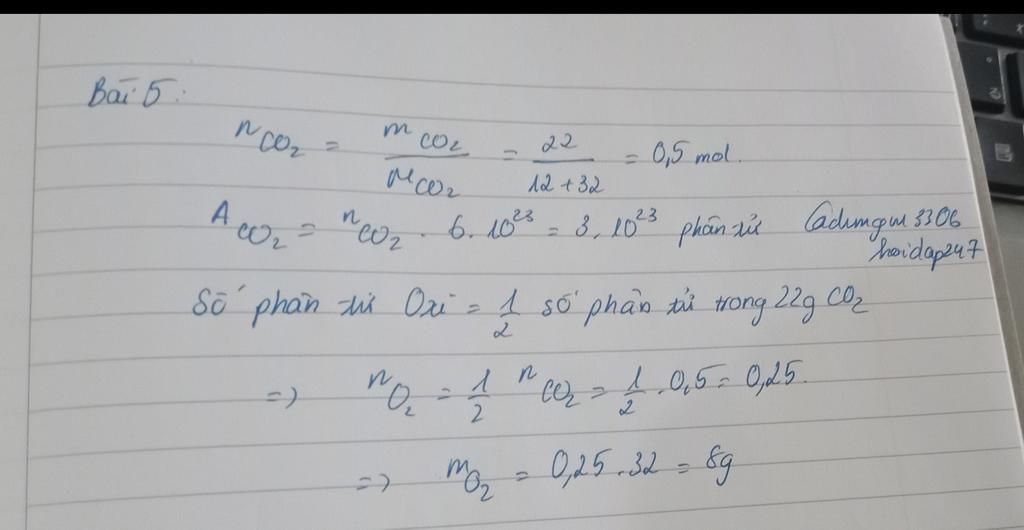 Bài 5:
nCO₂ = mCO₂/MCO₂ = 22/(12+32) = 0,5 mol.
ACO₂ = nCO₂ . 6.10²³ = 3.10²³ phân tử @dungm3306
hoidap247
Số phân tử Oxi = 1/2 số phân tử trong 22g CO₂
=> nO₂ = 1/2 nCO₂ = 1/2 . 0,5 = 0,25.
=> mO₂ = 0,25.32 = 8g